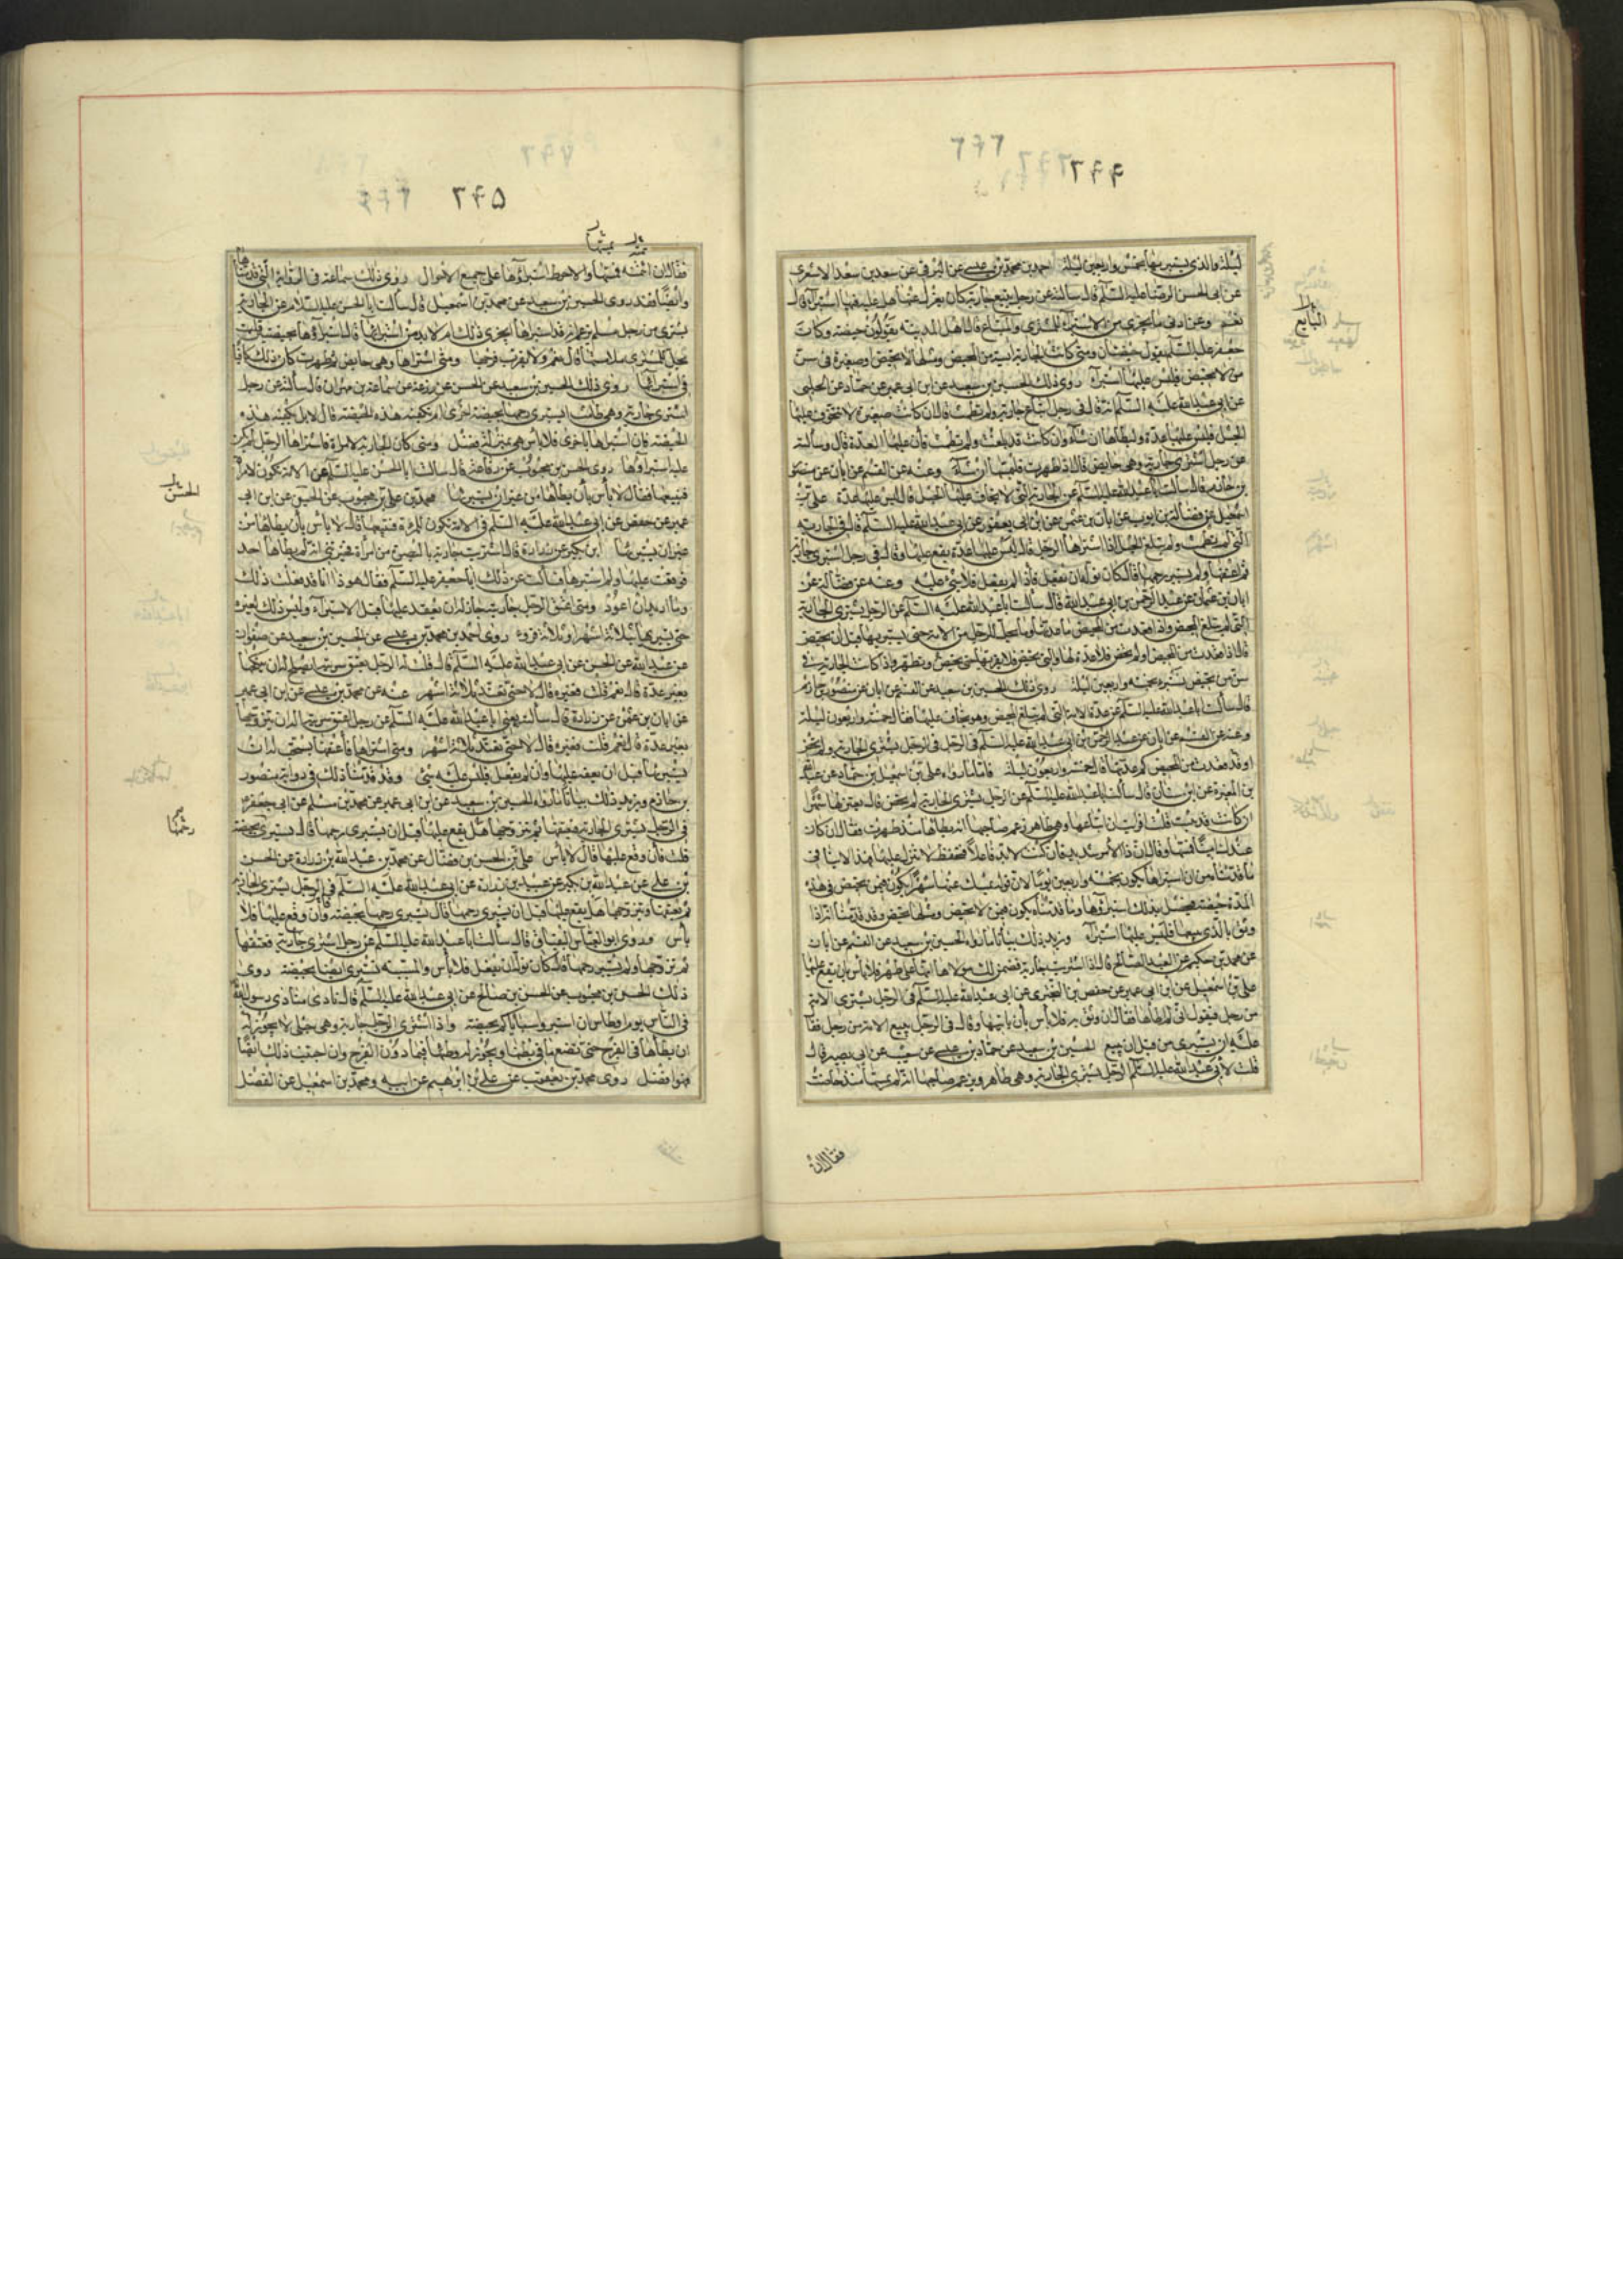 ليلة والذي يستبريها بخمس واربعين ليلة احمد بن محمد بن عيسى عن البرقي عن سعد بن سعد الاشعري
عن ابي الحسن الرضا عليه السلم قال سالته عن رجل يبيع جارية كان يعزل عنها هل عليه فيها استبرآء قال
نعم وعن ادنى ما يجزي من الاستبرآء للمشتري والمبتاع قال اهل المدينه يقولون حيضة وكان
جعفر عليه السلم يقول حيضتان ومتى كانت الجارية آيسة من المحيض ومثلها لا تحيض او صغيرة في سن
من لا تحيض فليس عليها استبرآء روى ذلك الحسين بن سعيد عن ابن ابي عمير عن حماد عن الحلبي
عن ابي عبد الله عليه السلم انه قال في رجل ابتاع جارية ولم تطمث قال ان كانت صغيرة لا يتخوف عليها
الحبل فليس عليها عدة وليطأها ان شآء وان كانت قد بلغت ولم تطمث فأن عليها العدة قال وسألته
عن رجل اشترى جارية وهي حايض قال اذا طهرت فليمسها ان شآء وعنه عن القسم عن ابان عن منصور
بن حازم قال سالت ابا عبد الله عليه السلم عن الجارية التي لا يخاف عليها الحبل قال ليس عليها عدة علي بن
اسمعيل عن فضالة بن ايوب عن ابان بن عثمن عن ابن ابي يعفور عن ابي عبد الله عليه السلم قال في الجارية
التي لم تطمث ولم تبلغ الحبل اذا اشتراها الرجل قال ليس عليها عدة يقع عليها وقال في رجل اشترى جارية
ثم اعتقها ولم يستبر رحمها قال كان نوله ان يفعل فأذا لم يفعل فلا شئ عليه وعنه عن فضالة عن
ابان بن عثمان عن عبد الرحمن بن ابي عبد الله قال سألت ابا عبد الله عليه السلم عن الرجل يشتري الجارية
التي لم تبلغ المحيض واذا قعدت من المحيض ما عدتها وما يحل للرجل من الامة حتى يستبريها قبل ان تحيض
قال اذا قعدت من المحيض او لم تحض فلا عدة لها والتي تحيض فلا يقربها حتى تحيض وتطهر واذا كانت الجارية في
سن من تحيض تستبرء بخمسه واربعين ليلة روى ذلك الحسين بن سعيد عن القسم عن ابان عن منصور بن حازم
قال سألت ابا عبد الله عليه السلم عن عدة الامة التي لم تبلغ المحيض وهو يخاف عليها فقال خمسة واربعون ليلة
وعنه عن القسم عن ابان عن عبد الرحمن بن ابي عبد الله عليه السلم في الرجل يشتري الجارية ولم تحض
او قعدت من المحيض كم عدتها قال خمسة واربعون ليلة فاما ما رواه علي بن اسمعيل بن حماد عن عبد الله
بن المغيرة عن ابن سنان قال سألت ابا عبد الله عليه السلم عن الرجل يشتري الجارية لم تحض قال يعتزلها شهرا
ان كانت قد مست قلت افرايت ان ابتاعها وهي طاهر زعم صاحبها انه لم يطأها منذ طهرت فقال ان كان
عندك امينا فمسها وقال ان ذا الامر شديد فان كنت لا بد فاعلا فتحفظ لا تنزل عليها فهذا لا ينافي
ما قدمناه من ان استبراها يكون بخمسه واربعين يوما لان قوله يمسك عنها شهرا يكون فيمن تحيض في هذه
المدة حيضة فيحصل بذلك استبرؤها وما قدمناه يكون فيمن لا تحيض ومثلها تحيض وقد قدمنا انه اذا
وثق بالذي يبيعها فليس عليها استبرآء ويزيد ذلك بيانا ما رواه الحسين بن سعيد عن القسم عن ابان
عن محمد بن حكيم عن العبد الصالح قال اذا اشتريت جارية فضمن لك مولاها انها على طهر فلا بأس بان يقع عليها
علي بن اسمعيل عن ابن ابي عمير عن حفص بن البختري عن ابي عبد الله عليه السلم في الرجل يشتري الامة
من رجل فيقول اني لم اطأها فقال ان وثق به فلا بأس بأن ياتيها وقال في الرجل يبيع الامة من رجل فقا
عليه ان يستبري من قبل ان يبيع الحسين بن سعيد عن حماد بن عيسى عن شعيب عن ابي بصير قال
قلت لأبي عبد الله عليه السلم الرجل يشتري الجارية وهي طاهر ويزعم صاحبها انه لم يمسها منذ حاضت
البايع
فقال ان
٥٩٢
فقال ان امنته فمسها والاحوط استبراؤها على جميع الاحوال روى ذلك سماعة في الرواية التي قدمناها
وايضا فقد روى الحسين بن سعيد عن محمد بن اسمعيل قال سألت ابا الحسن عليه السلام عن الجارية
تشترى من رجل مسلم يزعم انه قد استبراها ايجزي ذلك ام لا بد من استبرائها قال استبراؤها بحيضتين قلت
يحل للمشتري ملامستها قال نعم ولا يقرب فرجها ومتى اشتراها وهي حايض ثم طهرت كان ذلك كافيا
في استبرائها روى ذلك الحسين بن سعيد عن الحسن عن زرعة عن سماعة بن مهران قال سألته عن رجل
اشترى جارية وهي طامث ايستبري رحمها بحيضة اخرى ام تكفيه هذه الحيضة قال لا بل تكفيه هذه
الحيضة فان استبراها باخرى فلا بأس هي بمنزلة فضل ومتى كان الجارية لامراة فاشتراها الرجل لم يكن
عليه استبراؤها روى الحسن بن محبوب عن رفاعة قال سالت ابا الحسن عليه السلم عن الامة تكون لامراة
فتبيعها فقال لا بأس بأن يطأها من غير ان يستبريها محمد بن علي بن محبوب عن الحسين عن ابن ابي
عمير عن حفص عن ابي عبد الله عليه السلم في الامة تكون للمراة فتبيعها قال لا بأس بأن يطأها من
غير ان يستبريها ابن بكير عن زرارة قال اشتريت جارية بالبصرة من امراة فخبرتني انه لم يطأها احد
فوقعت عليها ولم استبرها فسألت عن ذلك ابا جعفر عليه السلم فقال هو ذا انا قد فعلت ذلك
وما اريد ان اعود ومتى اعتق الرجل جاريته جاز له ان يعقد عليها قبل الاستبرآء وليس ذلك لغيره
حتى يستبريها بثلاثة اشهر او ثلاثة قروء روى احمد بن محمد بن عيسى عن الحسين بن سعيد عن صفوان
عن عبد الله عن الحسن عن ابي عبد الله عليه السلم قال قلت له الرجل يعتق سريته ايصلح له ان ينكحها
بغير عدة قال نعم قلت فغيره قال لا حتى تعتد ثلاثة اشهر عنه عن محمد بن عيسى عن ابن ابي عمير
عن ابان بن عثمن عن زرارة قال سألته يعني ابا عبد الله عليه السلم عن رجل اعتق سريته اله ان يتزوجها
بغير عدة قال نعم قلت فغيره قال لا حتى تعتد ثلاثة اشهر ومتى اشتراها فأعتقها يستحب له ان
يستبريها قبل ان يعقد عليها وان لم يفعل فليس عليه شئ وقد قدمنا ذلك في رواية منصور
بن حازم ويزيد ذلك بيانا ما رواه الحسين بن سعيد عن ابن ابي عمير عن محمد بن مسلم عن ابي جعفر
في الرجل يشتري الجارية فيعتقها ثم يتزوجها هل يقع عليها قبل ان يستبري رحمها قال يستبري بحيضة
قلت فأن وقع عليها قال لا بأس علي بن الحسن بن فضال عن محمد بن عبد الله بن زرارة عن الحسن
بن علي عن عبد الله بن بكير عن عبيد بن زرارة عن ابي عبد الله عليه السلم في الرجل يشتري الجارية
ثم يعتقها ويتزوجها هل يقع عليها قبل ان يستبري رحمها قال يستبري رحمها بحيضة وأن وقع عليها فلا
بأس وروى ابو العباس البقباق قال سألت ابا عبد الله عليه السلم عن رجل اشترى جارية فعتقها
ثم تزوجها ولم يستبر رحمها قال كان نوله ان يفعل فلا بأس والمسبيه تستبرى ايضا بحيضة روى
ذلك الحسن بن محبوب عن الحسن بن صالح عن ابي عبد الله عليه السلم قال نادى منادي رسول الله
في الناس يوم اوطاس ان استبروا سباياكم بحيضة واذا اشترى الرجل جارية وهي حبلى لا يجوز له
ان يطأها في الفرج حتى تضع ما في بطنها ويجوز له وطئها فيما دون الفرج وان اجتنب ذلك ايضا
فهو افضل روى محمد بن يعقوب عن علي بن ابرهيم عن ابيه ومحمد بن اسمعيل عن الفضل
الحسن
رحمها